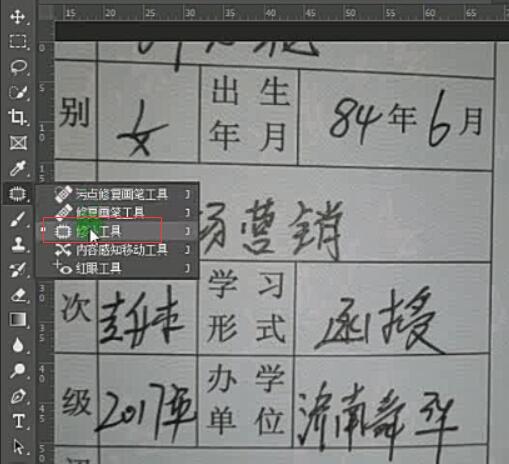 15 20 25 30 35 40 45 50 55 60 65 70
别 女 出生年月 84年6月
污点修复画笔工具 J
修复画笔工具 J
修补工具 J
内容感知移动工具 J
红眼工具 J
场营销
次 专升本 学习形式 函授
级 2017年 办学单位 济南